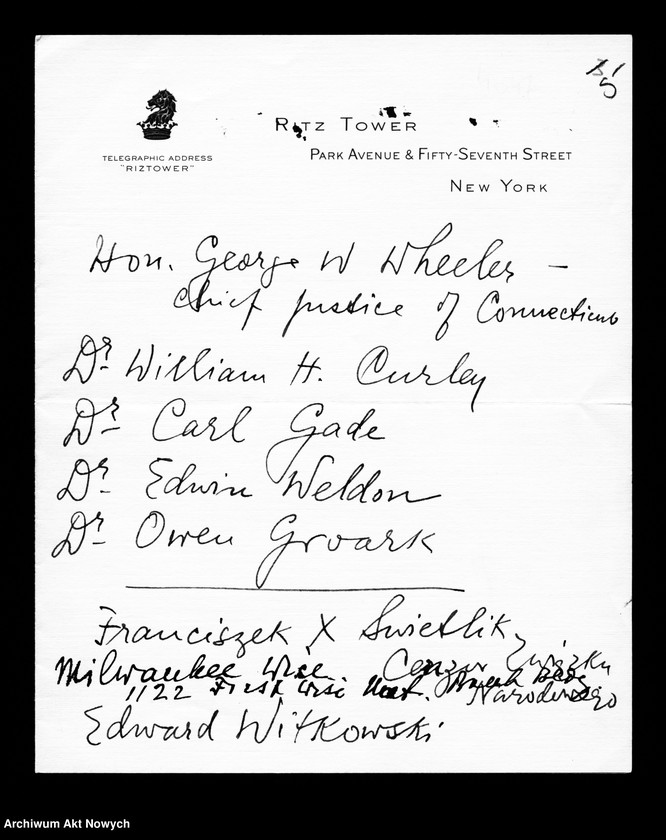 15
RITZ TOWER
TELEGRAPHIC ADDRESS
"RIZTOWER"
PARK AVENUE & FIFTY-SEVENTH STREET
NEW YORK
Hon. George W Wheeler –
Chief Justice of Connecticut
Dr William H. Curley
Dr Carl Gade
Dr Edwin Weldon
Dr Owen Groark
Franciszek X Swietlik,
Milwaukee Wisc. Cenzor Związku
Narodowego
1122 First Wisc Nat. Bank
Edward Witkowski
Archiwum Akt Nowych